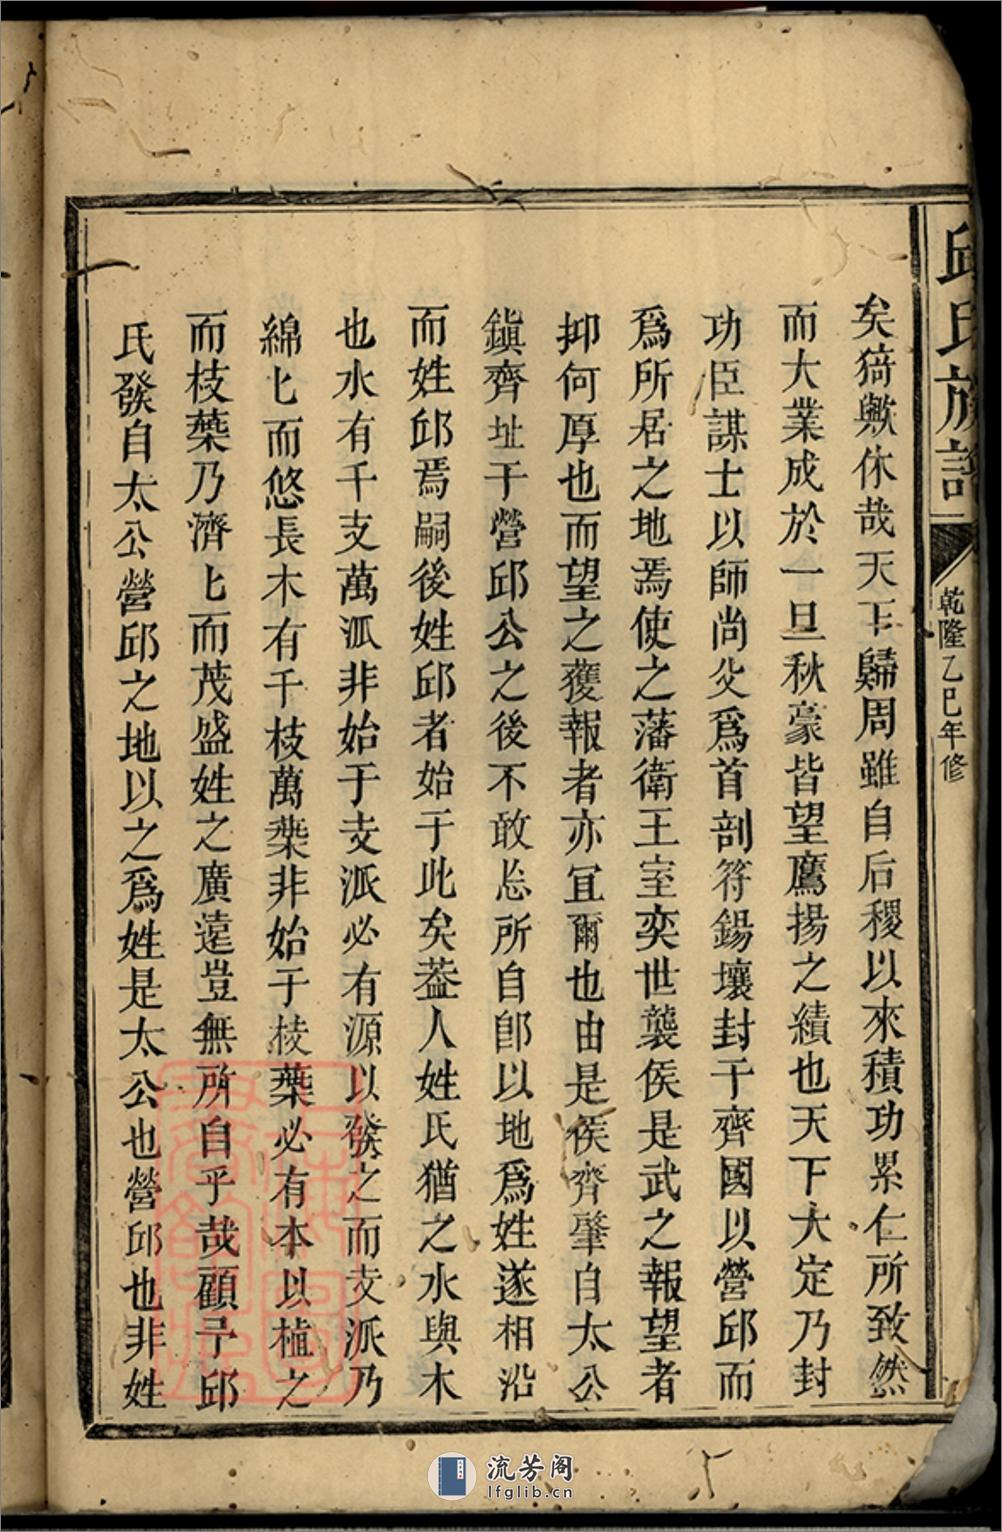 邱氏族譜
乾隆乙巳年修
矣猗歟休哉天下歸周雖自后稷以來積功累仁所致然
而大業成於一旦秋豪皆望鷹揚之績也天下大定乃封
功臣謀士以師尚父爲首剖符錫壤封于齊國以營邱而
爲所居之地焉使之藩衛王室奕世襲侯是武之報望者
抑何厚也而望之獲報者亦冝爾也由是侯齊肇自太公
鎭齊址于營邱公之後不敢忘所自卽以地爲姓遂相沿
而姓邱焉嗣後姓邱者始于此矣葢人姓氏猶之水與木
也水有千支萬派非始于支派必有源以發之而支派乃
綿匕而悠長木有千枝萬葉非始于枝葉必有本以植之
而枝葉乃濟匕而茂盛姓之廣遠豈無所自乎哉顧予邱
氏發自太公營邱之地以之爲姓是太公也營邱也非姓
流芳阁
lfglib.cn